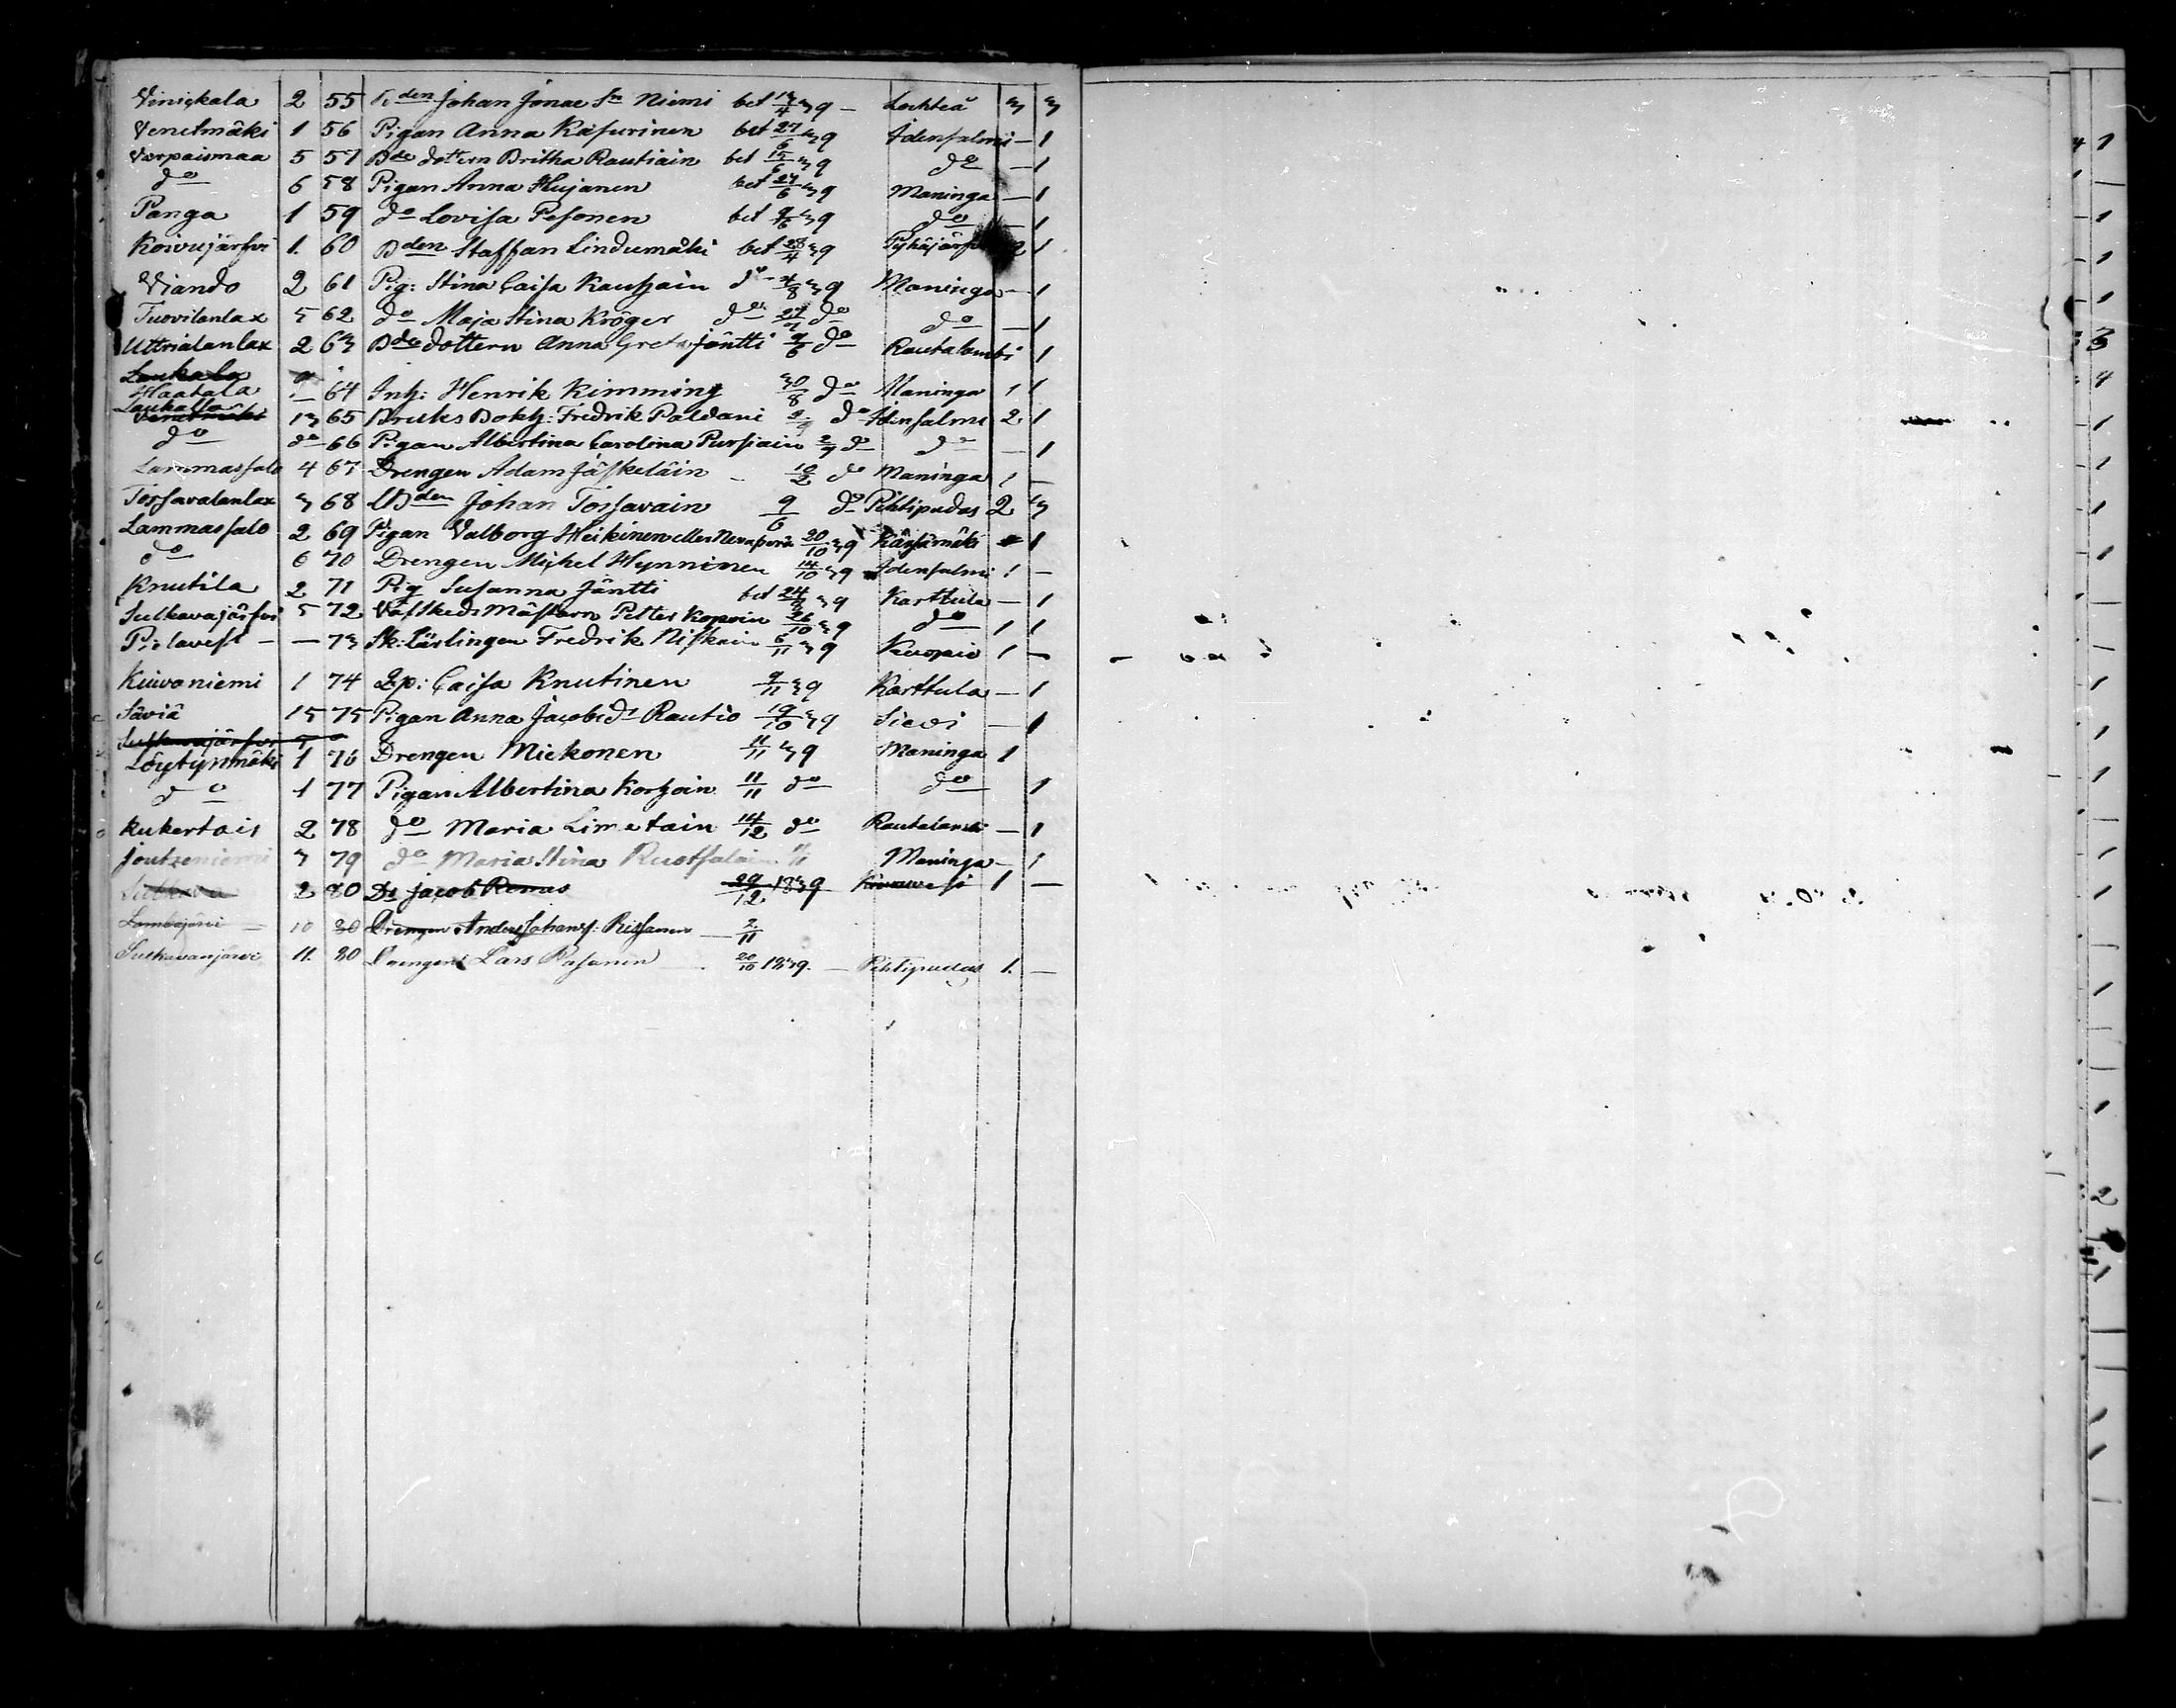 Vinickala 2 55 Bden Johan Jonae Sn Niemi bet 13/4 39 – Lochteå 3 3
Venetmäki 1 56 Pigan Anna Kasurinen bet 27/6 39 Idensalmi – 1
Varpaismaa 5 57 Bde dottern Britha Rautiain bet 15/6 39 do – 1
do 6 58 Pigan Anna Hujanen bet 27/6 39 Maninga – 1
Panga 1 59 do Lovisa Pesonen bet 9/6 39 do – 1
Koivujärfvi 1. 60 Bden Staffan Lindumäki bet 28/4 39 Pyhäjärfvi 2 1
Viando 2 61 Pig: Stina Caisa Kauhain do 4/8 39 Maninga – 1
Tuovilanlax 5 62 do Maja Stina Kröger do 27/7 do do – 1
Uttrialanlax 2 63 Bde dottern Anna Greta Jäntti 9/6 do Rautalambi 1
Laukala
Haatala – 64 Inh: Henrik Kimming 30/8 do Maninga 1 1
Laukala
Venetmäki 13 65 Bruks Bokh: Fredrik Paldani 2/9 do Idensalmi 2 1
do do 66 Pigan Albertina Carolina Pursiain 2/9 do do – 1
Lammassalo 4 67 Drengen Adam Jäskeläin – 10/2 do Maninga 1 –
Tossavalanlax 3 68 Bden Johan Tossavain 9/6 do Pihtipudas 2 3
Lammassalo 2 69 Pigan Valborg Heikinen eller 20/10 39 Kärsämäki 1
do 6 70 Drengen Michel Hynninen 14/10 39 Idensalmi 1 –
Knutila 2 71 Pig Susanna Jäntti bet 24/8 39 Karttula – 1
Sulkavajärfvi 5 72 Mästarn Petter Kopoin 26/10 39 do 1 1
Pielavesi – – 73 Sk: Lärlingen Fredrik Niskain 6/11 39 Kuopio 1 –
Kuivaniemi 1 74 Qp: Caisa Knutinen 9/11 39 Karttula – 1
Säviä 15 75 Pigan Anna Jacobsdr Rautio 19/10 39 Sievi – 1
Sulkavajärfvi 5
Löytynmäki 1 76 Drengen Miekonen 11/11 39 Maninga 1
do 1 77 Pigan Albertina Korhoin 11/11 do do 1
Kukertais 2 78 do Maria Limetain 14/12 do Rautalambi – 1
Joutzeniemi 3 79 do Maria Stina Ruotsalain Maninga – 1
Sulkava 2 80 Dr Jacob Remas 29/12 1839 1 –
Lambajärvi – 10 80 Drengen Anders Johanss: Rissanen – 2/11
Sulkavanjärvi 11. 80 Drengen Lars Rasanen – 20/10 1839. – Pihtipudas 1. –